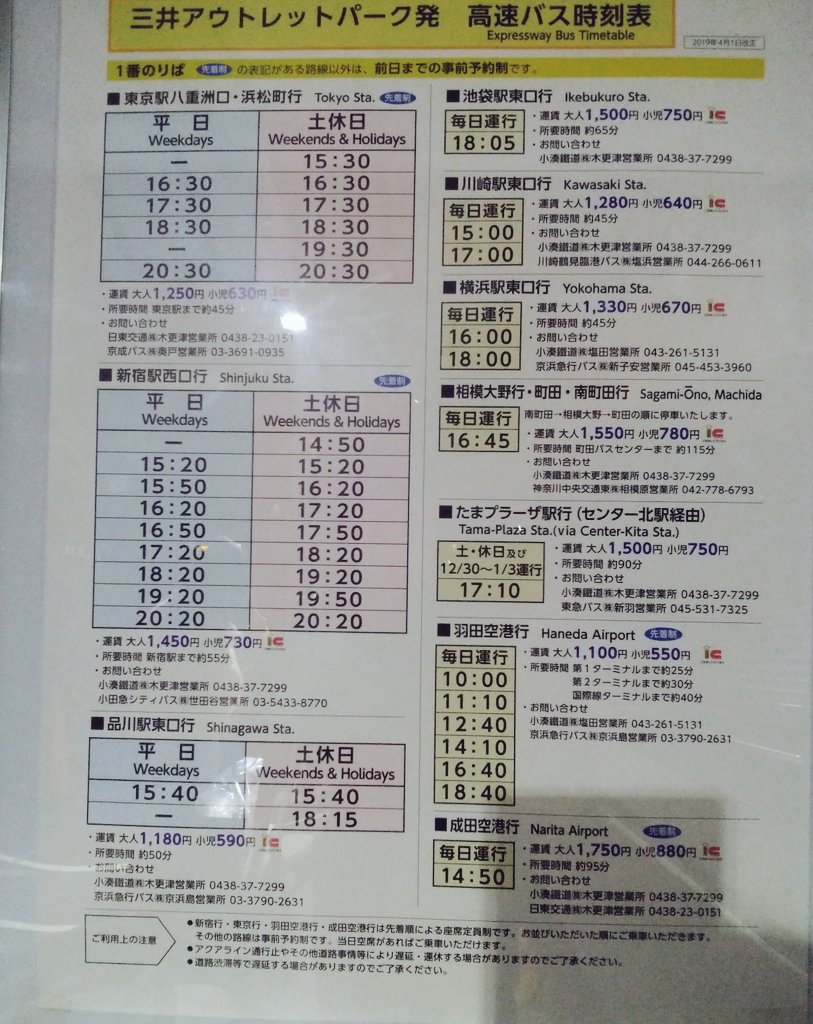 三井アウトレットパーク発 高速バス時刻表
Expressway Bus Timetable
2019年4月1日改正
1番のりば 先着制 の表記がある路線以外は、前日までの事前予約制です。
■東京駅八重洲口・浜松町行 Tokyo Sta. 先着制
平 日 土休日
Weekdays Weekends & Holidays
ー 15:30
16:30 16:30
17:30 17:30
18:30 18:30
ー 19:30
20:30 20:30
・運賃 大人1,250円 小児630円 IC
・所要時間 東京駅まで約45分
・お問い合わせ
日東交通㈱木更津営業所 0438-23-0151
京成バス㈱奥戸営業所 03-3691-0935
■新宿駅西口行 Shinjuku Sta. 先着制
平 日 土休日
Weekdays Weekends & Holidays
ー 14:50
15:20 15:20
15:50 16:20
16:20 17:20
16:50 17:50
17:20 18:20
18:20 19:20
19:20 19:50
20:20 20:20
・運賃 大人1,450円 小児730円 IC
・所要時間 新宿駅まで約55分
・お問い合わせ
小湊鐵道㈱木更津営業所 0438-37-7299
小田急シティバス㈱世田谷営業所 03-5433-8770
■品川駅東口行 Shinagawa Sta.
平 日 土休日
Weekdays Weekends & Holidays
15:40 15:40
ー 18:15
・運賃 大人1,180円 小児590円 IC
・所要時間 約50分
・お問い合わせ
小湊鐵道㈱木更津営業所 0438-37-7299
京浜急行バス㈱京浜島営業所 03-3790-2631
■池袋駅東口行 Ikebukuro Sta.
毎日運行
18:05
・運賃 大人1,500円 小児750円 IC
・所要時間 約65分
・お問い合わせ
小湊鐵道㈱木更津営業所 0438-37-7299
■川崎駅東口行 Kawasaki Sta.
毎日運行
15:00
17:00
・運賃 大人1,280円 小児640円 IC
・所要時間 約45分
・お問い合わせ
小湊鐵道㈱木更津営業所 0438-37-7299
川崎鶴見臨港バス㈱塩浜営業所 044-266-0611
■横浜駅東口行 Yokohama Sta.
毎日運行
16:00
18:00
・運賃 大人1,330円 小児670円 IC
・所要時間 約45分
・お問い合わせ
小湊鐵道㈱塩田営業所 043-261-5131
京浜急行バス㈱新子安営業所 045-453-3960
■相模大野行・町田・南町田行 Sagami-Ōno, Machida
毎日運行
16:45
南町田→相模大野→町田の順に停車いたします。
・運賃 大人1,550円 小児780円 IC
・所要時間 町田バスセンターまで 約115分
・お問い合わせ
小湊鐵道㈱木更津営業所 0438-37-7299
神奈川中央交通東㈱相模原営業所 042-778-6793
■たまプラーザ駅行(センター北駅経由)
Tama-Plaza Sta.(via Center-Kita Sta.)
土・休日及び
12/30〜1/3運行
17:10
・運賃 大人1,500円 小児750円
・所要時間 約90分
・お問い合わせ
小湊鐵道㈱木更津営業所 0438-37-7299
東急バス㈱新羽営業所 045-531-7325
■羽田空港行 Haneda Airport 先着制
毎日運行
10:00
11:10
12:40
14:10
16:40
18:40
・運賃 大人1,100円 小児550円 IC
・所要時間 第1ターミナルまで約25分
第2ターミナルまで約30分
国際線ターミナルまで約40分
・お問い合わせ
小湊鐵道㈱塩田営業所 043-261-5131
京浜急行バス㈱京浜島営業所 03-3790-2631
■成田空港行 Narita Airport 先着制
毎日運行
14:50
・運賃 大人1,750円 小児880円 IC
・所要時間 約95分
・お問い合わせ
小湊鐵道㈱木更津営業所 0438-37-7299
日東交通㈱木更津営業所 0438-23-0151
ご利用上の注意
●新宿行・東京行・羽田空港行・成田空港行は先着順による座席定員制です。お並びいただいた順にご乗車いただきます。
その他の路線は事前予約制です。当日空席があればご乗車いただけます。
●アクアライン通行止やその他道路事情等により遅延・運休する場合がありますのでご了承ください。
●道路渋滞等で遅延する場合がありますのでご了承ください。